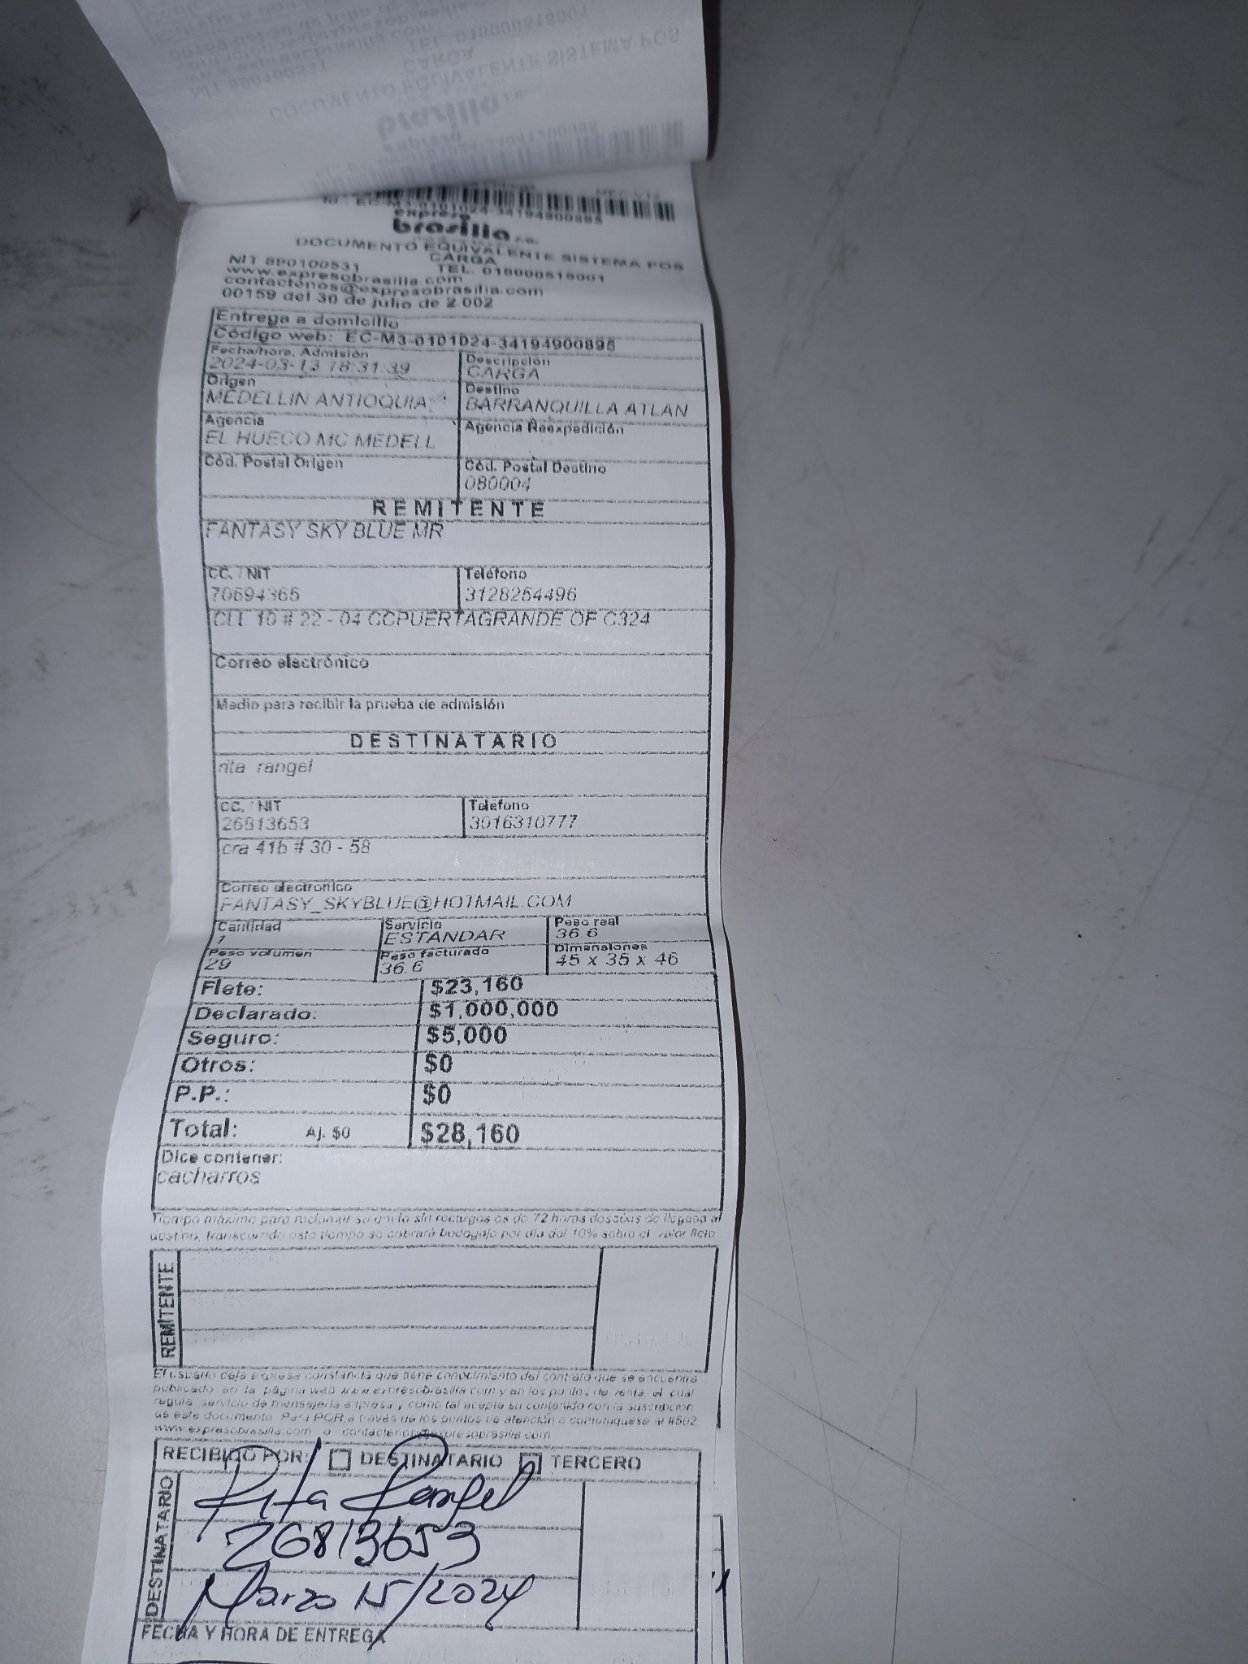 Id.: EC-M3-0101024-34194900895
expreso
brasilia s.a.
DOCUMENTO EQUIVALENTE SISTEMA POS
CARGA
NIT 890100531 TEL. 018000518001
www.expresobrasilia.com
contactenos@expresobrasilia.com
00159 del 30 de julio de 2.002
Entrega a domicilio
Código web: EC-M3-0101024-34194900895
Fecha/hora. Admisión Descripción
2024-03-13 18:31:39 CARGA
Origen Destino
MEDELLIN ANTIOQUIA BARRANQUILLA ATLAN
Agencia Agencia Reexpedición
EL HUECO MC MEDELL
Cód. Postal Origen Cód. Postal Destino
080004
REMITENTE
FANTASY SKY BLUE MR
CC. / NIT Teléfono
70694365 3128254496
CLL 10 # 22 - 04 CCPUERTAGRANDE OF C324
Correo electrónico
Medio para recibir la prueba de admisión
DESTINATARIO
rita rangel
CC. / NIT Teléfono
26813653 3016310777
cra 41b # 30 - 58
Correo electronico
FANTASY_SKYBLUE@HOTMAIL.COM
Cantidad Servicio Peso real
1 ESTANDAR 36.6
Peso volumen Peso facturado Dimensiones
29 36.6 45 x 35 x 46
Flete: $23,160
Declarado: $1,000,000
Seguro: $5,000
Otros: $0
P.P.: $0
Total: Aj. $0 $28,160
Dice contener:
cacharros
Tiempo máximo para reclamar su envío sin recargos es de 72 horas después de llegada al
destino, transcurrido este tiempo se cobrará bodegaje por día del 10% sobre el valor flete
REMITENTE
El usuario deja expresa constancia que tiene conocimiento del contrato que se encuentra
publicado en la página web www.expresobrasilia.com y en los puntos de venta, el cual
regula servicio de mensajería expresa y como tal acepta su contenido con la suscripción
de este documento. Para PQR a través de los puntos de atención o comuniquese al #502
www.expresobrasilia.com o contactenos@expresobrasilia.com
RECIBIDO POR: DESTINATARIO TERCERO
DESTINATARIO
Rita Rangel
26813653
Marzo 15/2024
FECHA Y HORA DE ENTREGA